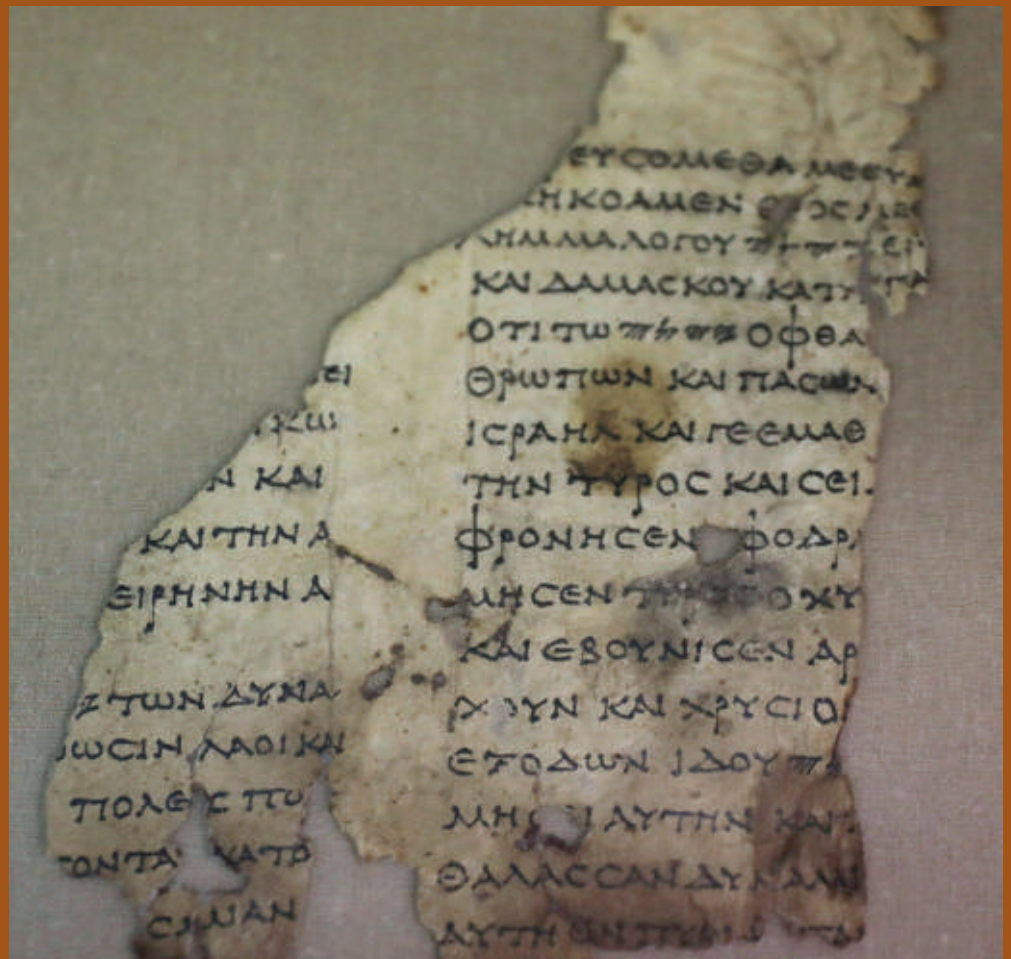 ΕΙ
ΚΩ
Ν ΚΑΙ
ΚΑΙ ΤΗΝ Α
ΕΙΡΗΝΗΝ Α
Ζ ΤΩΝ ΔΥΝΑ
ΩϹΙΝ ΛΑΟΙ ΚΑΙ
ΠΟΛΕ Ϲ ΠΟ
ΟΝΤΑΙ ΚΑΤΟ
ΕΥϹΟΜΕΘΑ ΜΕΘΥΜ
ΚΗΚΟΑΜΕΝ
ΛΗΜΜΑ ΛΟΓΟΥ 𐤉𐤄𐤅𐤄
ΚΑΙ ΔΑΜΑϹΚΟΥ ΚΑΤ
ΟΤΙ ΤΩ 𐤉𐤄𐤅𐤄 ΟΦΘΑ
ΘΡΩΠΩΝ ΚΑΙ ΠΑϹΩΝ
ΙϹΡΑΗΛ ΚΑΙ ΓΕ ΕΜΑΘ
ΤΗΝ ΤΥΡΟϹ ΚΑΙ ϹΕΙ
ΦΡΟΝΗϹΕΝ ΦΟΔΡ
ΜΗϹΕΝ ΟΧΥ
ΚΑΙ ΕΒΟΥΝΙϹΕΝ ΑΡ
Χ ΟΥΝ ΚΑΙ ΧΡΥϹΙΟ
ΕΞΟΔΩΝ ΙΔΟΥ
ΜΗ Ι ΑΥΤΗΝ ΚΑΙ
ΘΑΛΑϹϹΑΝ ΔΥΝΑΜΙ
ΑΥΤΗ ΕΝ ΠΥΡΙ